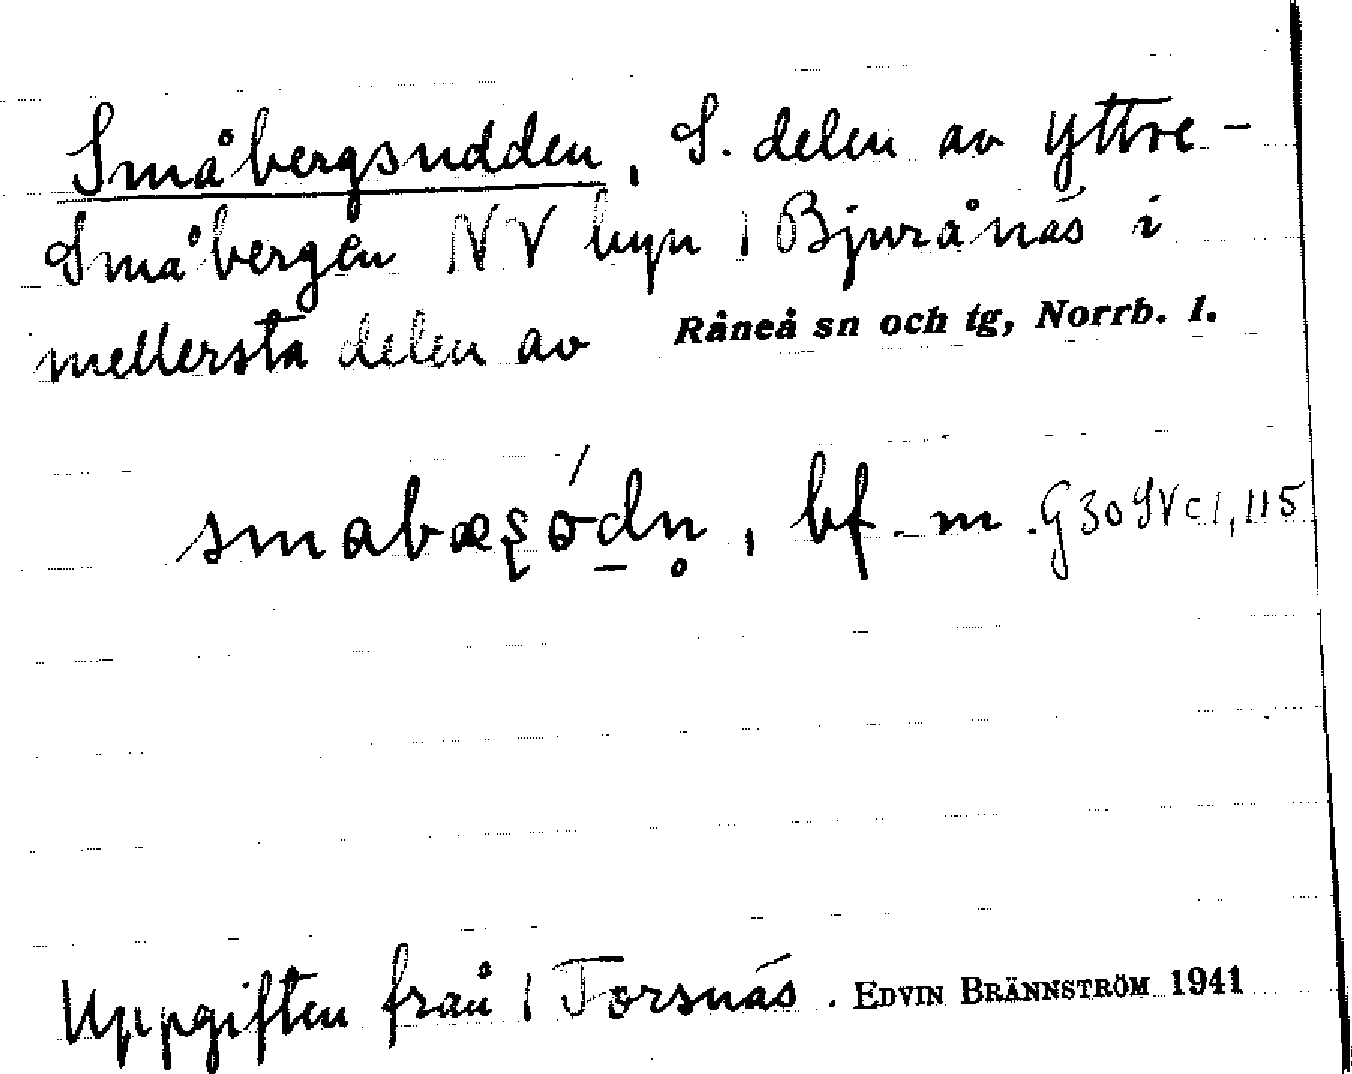 Småbergsudden, S. delen av Yttre-
Småbergen NV byn / Bjurånäs i
mellersta delen av Råneå sn och tg, Norrb. l.
smabæʂódn̥, bf. m. G30 IV c 1, 115
Uppgiften från / Torsnäs. EDVIN BRÄNNSTRÖM 1941